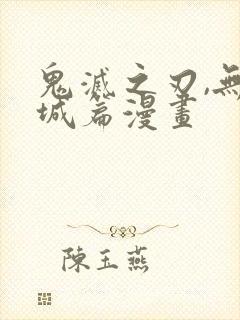 鬼滅之刃,無
城篇漫畫
陳玉燕